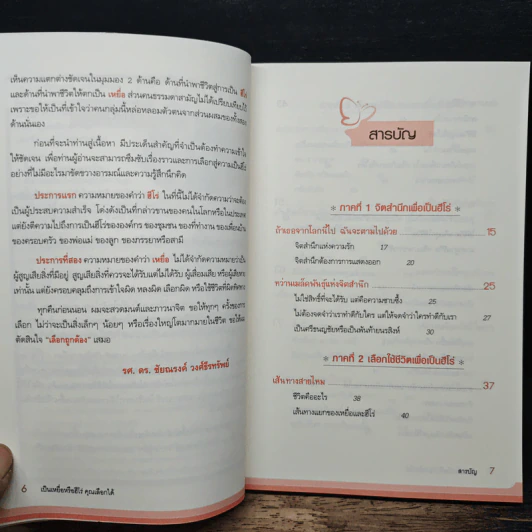 เห็นความแตกต่างชัดเจนในมุมมอง 2 ด้านคือ ด้านที่นำพาชีวิตสู่การเป็น ฮีโร่
และด้านที่นำพาชีวิตให้ตกเป็น เหยื่อ ส่วนคนธรรมดาสามัญไม่ได้เปรียบเทียบไว้
เพราะขอให้เป็นที่เข้าใจว่าคนกลุ่มนี้หล่อหลอมตัวตนจากส่วนผสมของทั้งสอง
ด้านนั่นเอง
ก่อนที่จะนำท่านสู่เนื้อหา มีประเด็นสำคัญที่จำเป็นต้องทำความเข้าใจ
ให้ชัดเจน เพื่อท่านผู้อ่านจะสามารถซึมซับเรื่องราวและการเลือกสู่ความเป็นฮีโร่
อย่างไม่มีอะไรมาขัดขวางอารมณ์และความรู้สึกนึกคิด
ประการแรก ความหมายของคำว่า ฮีโร่ ในที่นี้ไม่ได้จำกัดความว่าจะต้อง
เป็นผู้ประสบความสำเร็จ โด่งดังเป็นที่กล่าวขานของคนในโลกหรือในประเทศ
แต่ยังตีความไปถึงการเป็นฮีโร่ขององค์กร ของชุมชน ของที่ทำงาน ของเพื่อนบ้าน
ของครอบครัว ของพ่อแม่ ของลูก ของภรรยาหรือสามี
ประการที่สอง ความหมายของคำว่า เหยื่อ ไม่ได้จำกัดความหมายว่าต้อง
เป็นผู้สูญเสียสิ่งที่มีอยู่ สูญเสียสิ่งที่ควรจะได้รับแต่ไม่ได้รับ ผู้เสื่อมเสีย หรือผู้เสียหาย
เท่านั้น แต่ยังครอบคลุมถึงการเข้าใจผิด หลงผิด เลือกผิด หรือใช้ชีวิตที่ผิดทิศทาง
ทุกคืนก่อนนอน ผมจะสวดมนต์และภาวนาจิต ขอให้ทุกๆ ครั้งของการ
เลือก ไม่ว่าจะเป็นสิ่งเล็กๆ น้อยๆ หรือเรื่องใหญ่โตมากมายในชีวิต ขอให้ผม
ตัดสินใจ "เลือกถูกต้อง" เสมอ
รศ. ดร. ชัยณรงค์ วงศ์ธีรทรัพย์
6 เป็นเหยื่อหรือฮีโร่ คุณเลือกได้
สารบัญ
* ภาคที่ 1 จิตสำนึกเพื่อเป็นฮีโร่ *
ถ้าเธอจากโลกนี้ไป ฉันจะตามไปด้วย 15
จิตสำนึกแห่งความรัก 17
จิตสำนึกต้องการการแสดงออก 20
หว่านเมล็ดพันธุ์แห่งจิตสำนึก 25
ไม่ใช่สิทธิ์ที่จะได้รับ แต่คือความซาบซึ้ง 25
ไม่ต้องจดจำว่าเราทำดีกับใคร แต่ให้จดจำว่าใครทำดีกับเรา 27
เป็นเศรษฐนชัยหรือเป็นพันท้ายนรสิงห์ 30
* ภาคที่ 2 เลือกใช้ชีวิตเพื่อเป็นฮีโร่ *
เส้นทางสายไหน 37
ชีวิตคืออะไร 38
เส้นทางแยกของเหยื่อและฮีโร่ 40
สารบัญ 7